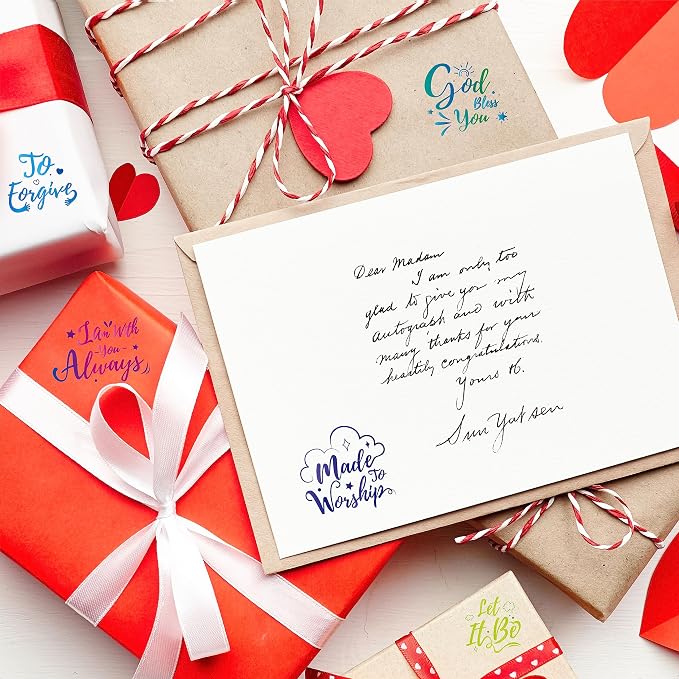 God
Bless
You
To
Forgive
Dear Madam
I am only too
glad to give you my
autograph and with
many thanks for your
heartily congratulations.
Yours
Sun Yat sen
I am With
You
Always
Made
To
Worship
Let
It Be